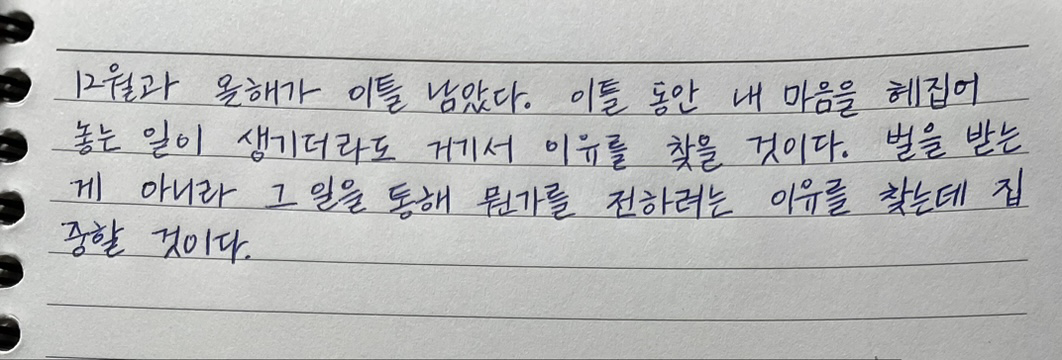 12월과 올해가 이틀 남았다. 이틀 동안 내 마음을 헤집어
놓는 일이 생기더라도 거기서 이유를 찾을 것이다. 벌을 받는
게 아니라 그 일을 통해 뭔가를 전하려는 이유를 찾는데 집
중할 것이다.